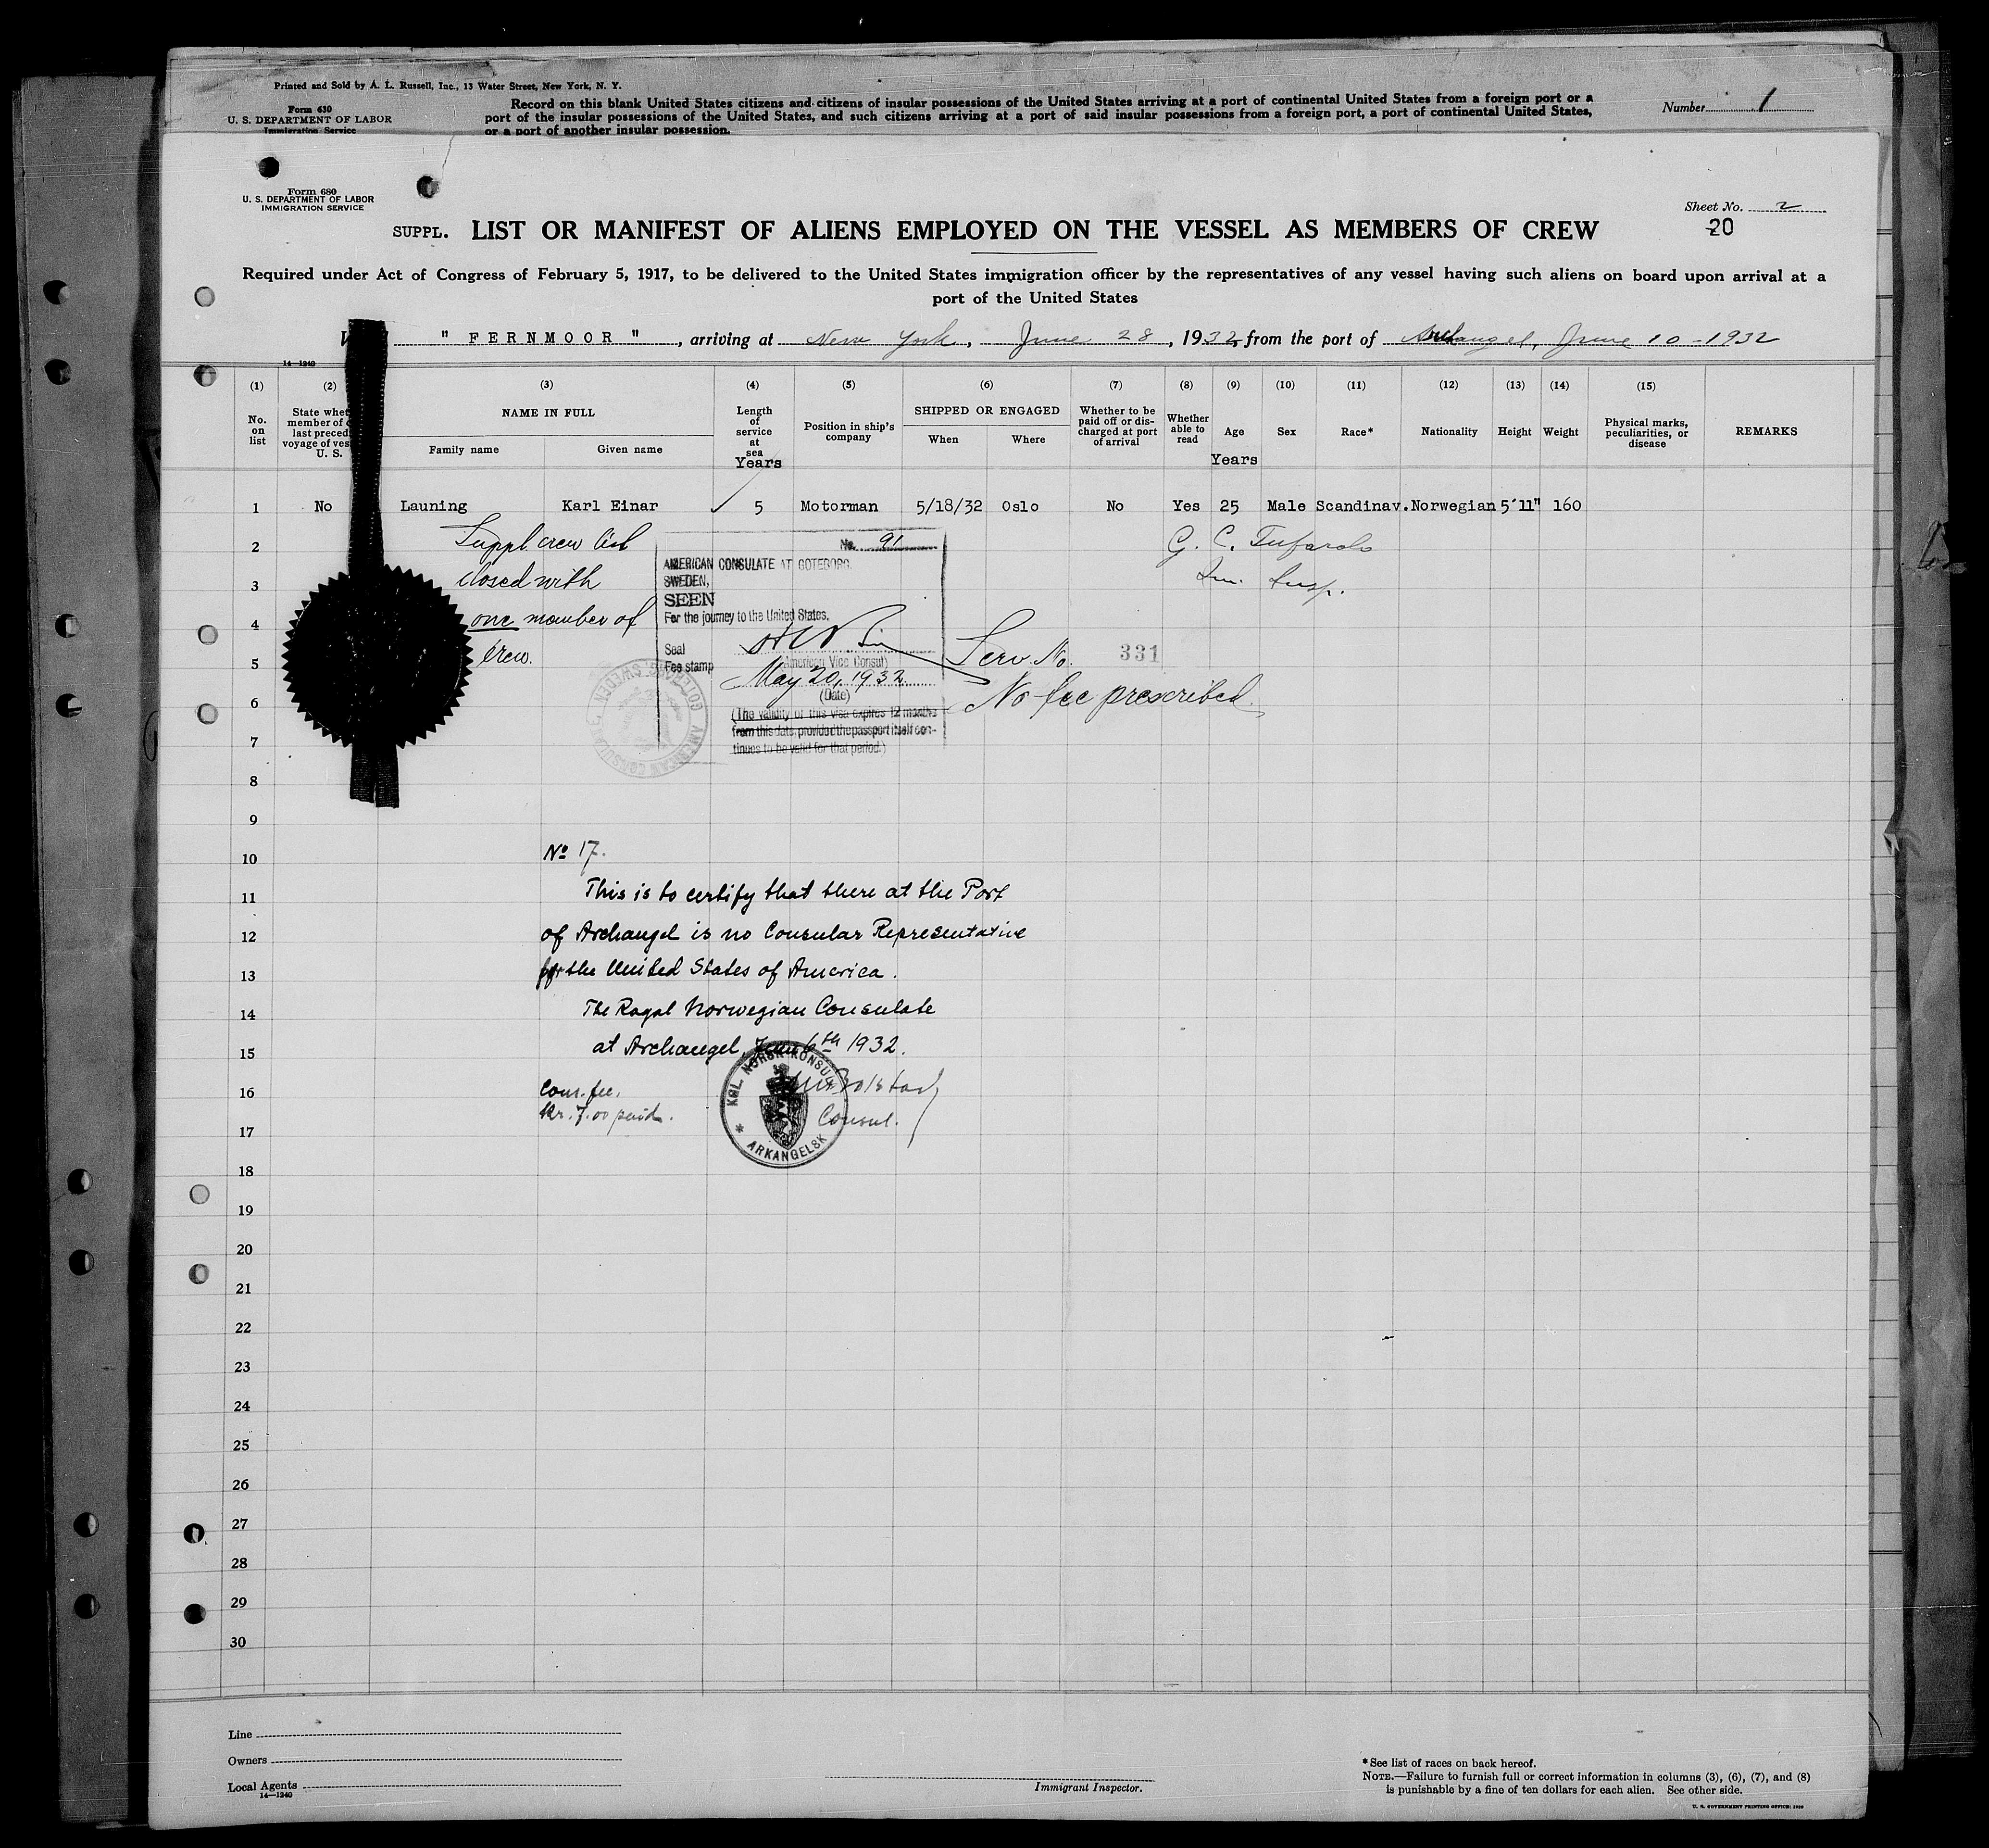 Printed and Sold by A. L. Russell, Inc., 13 Water Street, New York, N. Y.
Form 630
U. S. DEPARTMENT OF LABOR
Immigration Service
Record on this blank United States citizens and citizens of insular possessions of the United States arriving at a port of continental United States from a foreign port or a
port of the insular possessions of the United States, and such citizens arriving at a port of said insular possessions from a foreign port, a port of continental United States,
or a port of another insular possession.
Number 1
Form 680
U. S. DEPARTMENT OF LABOR
IMMIGRATION SERVICE
Sheet No. 2
20
SUPPL. LIST OR MANIFEST OF ALIENS EMPLOYED ON THE VESSEL AS MEMBERS OF CREW
Required under Act of Congress of February 5, 1917, to be delivered to the United States immigration officer by the representatives of any vessel having such aliens on board upon arrival at a
port of the United States
" FERNMOOR " , arriving at New York, June 28 , 1932, from the port of Archangel, June 10 - 1932
14-1240
(1) (2) (3) (4) (5) (6) (7) (8) (9) (10) (11) (12) (13) (14) (15)
No. on list
State whet
member of
last preced
voyage of ves
U. S.
NAME IN FULL
Family name Given name
Length of service at sea
Years
Position in ship's company
SHIPPED OR ENGAGED
When Where
Whether to be paid off or discharged at port of arrival
Whether able to read
Age
Years
Sex
Race*
Nationality
Height
Weight
Physical marks, peculiarities, or disease
REMARKS
1 No Launing Karl Einar 5 Motorman 5/18/32 Oslo No Yes 25 Male Scandinav. Norwegian 5'11" 160
2 Suppl. crew list
3 closed with
4 one member of
5 crew.
G. C. Tufarolo
Im. Insp.
No. 91
AMERICAN CONSULATE AT GOTEBORG,
SWEDEN,
SEEN
For the journey to the United States.
Seal
(American Vice Consul)
Fee stamp
May 20, 1932
(Date)
(The validity of this visa expires 12 months
from this date, provided the passport itself con-
tinues to be valid for that period.)
AMERICAN CONSULATE GOTEBORG, SWEDEN
Serv. No. 331
No fee prescribed.
6
7
8
9
10 No 17.
11 This is to certify that there at the Port
12 of Archangel is no Consular Representative
13 for the United States of America.
14 The Royal Norwegian Consulate
15 at Archangel, June 6th 1932.
16 Cons. fee.
kr. 7.00 paid.
Consul.
KGL. NORSK KONSULAT
* ARKANGELSK
17
18
19
20
21
22
23
24
25
26
27
28
29
30
Line
Owners
Local Agents
14-1240
Immigrant Inspector.
* See list of races on back hereof.
NOTE.—Failure to furnish full or correct information in columns (3), (6), (7), and (8)
is punishable by a fine of ten dollars for each alien. See other side.
U. S. GOVERNMENT PRINTING OFFICE: 1929